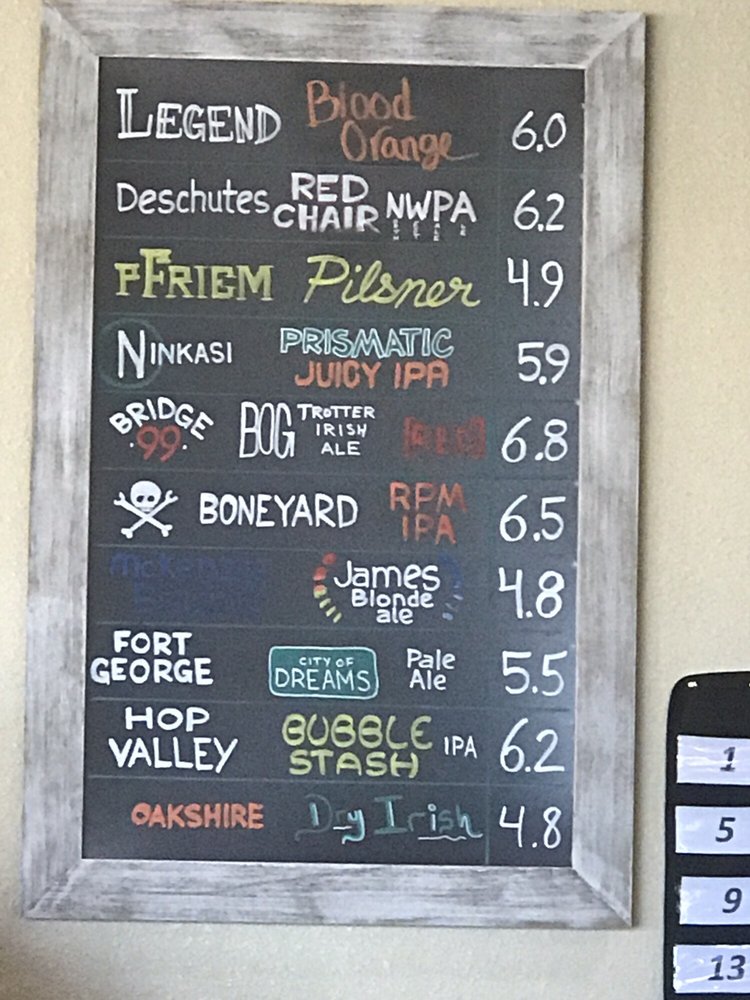 LEGEND Blood Orange 6.0
Deschutes RED CHAIR NWPA 6.2
PFRIEM Pilsner 4.9
NINKASI PRISMATIC JUICY IPA 5.9
BRIDGE 99 BOG TROTTER IRISH ALE RED 6.8
BONEYARD RPM IPA 6.5
McKenzie James Blonde ale 4.8
FORT GEORGE CITY OF DREAMS Pale Ale 5.5
HOP VALLEY BUBBLE STASH IPA 6.2
OAKSHIRE Dry Irish 4.8
1
5
9
13